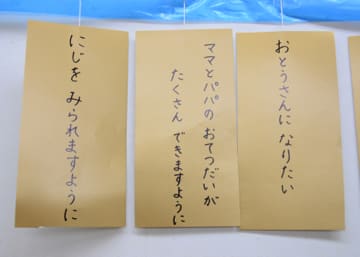 おとうさんに なりたい
ママとパパの おてつだいが
たくさん できますように
にじを みられますように